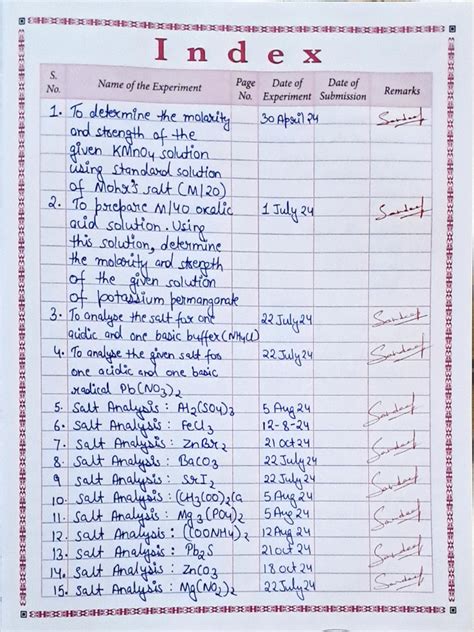 Index
S. No. Name of the Experiment Page No. Date of Experiment Date of Submission Remarks
1. To determine the molarity 30 April 24 Sandeep
and strength of the
given KMnO4 solution
using standard solution
of Mohr's salt (M/20)
2. To prepare M/40 oxalic 1 July 24 Sandeep
acid solution. Using
this solution, determine
the molarity and strength
of the given solution
of potassium permangonate
3. To analyse the salt for one 22 July 24 Sandeep
acidic and one basic buffer (NH4Cl)
4. To analyse the given salt for 22 July 24 Sandeep
one acidic and one basic
radical Pb(NO3)2
5. Salt Analysis : Al2(SO4)3 5 Aug 24 Sandeep
6. Salt Analysis : FeCl3 12-8-24
7. Salt Analysis : ZnBr2 21 Oct 24 Sandeep
8. Salt Analysis : BaCO3 22 July 24
9 Salt Analysis : SrI2 22 July 24 Sandeep
10. Salt Analysis : (CH3COO)2Ca 5 Aug 24
11. Salt Analysis : Mg3(PO4)2 5 Aug 24 Sandeep
12. Salt Analysis : (COONH4)2 12 Aug 24
13. Salt Analysis : Pb2S 21 Oct 24 Sandeep
14. Salt Analysis : ZnCO3 18 Oct 24
15. Salt Analysis : Mg(NO2)2 22 July 24 Sandeep